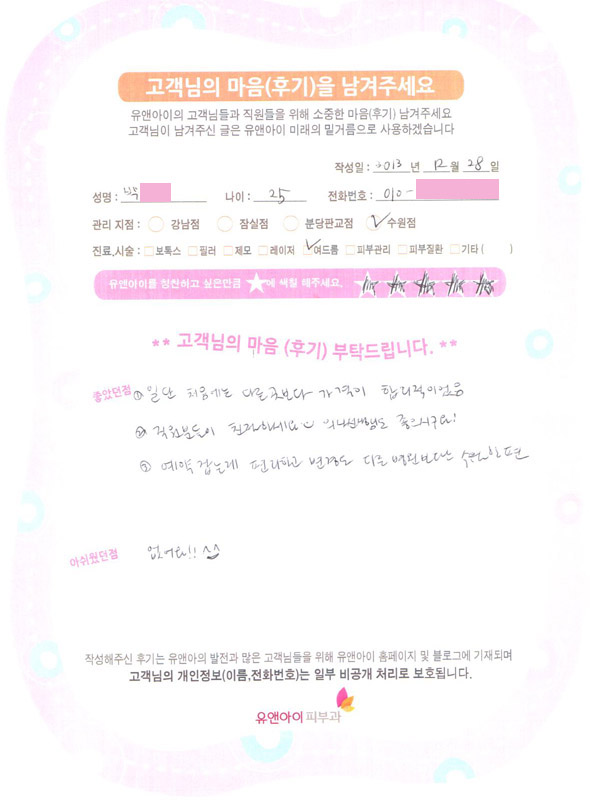 고객님의 마음(후기)을 남겨주세요
유앤아이의 고객님들과 직원들을 위해 소중한 마음(후기) 남겨주세요
고객님이 남겨주신 글은 유앤아이 미래의 밑거름으로 사용하겠습니다
작성일 : 2013 년 12 월 28 일
성명 : 박 나이 : 25 전화번호 : 010 -
관리 지점 : 강남점 잠실점 분당판교점 수원점
진료,시술 : 보톡스 필러 제모 레이저 여드름 피부관리 피부질환 기타 ( )
유앤아이를 칭찬하고 싶은만큼 ★에 색칠 해주세요.
** 고객님의 마음 (후기) 부탁드립니다. **
좋았던점 ① 일단 처음에는 다른곳보다 가격이 합리적이었음
② 직원분들이 친절하세요 의사선생님도 좋으시구요!
③ 예약 잡는게 편리하고 변경도 다른 병원보다 수월한 편
아쉬웠던점 없어요!! ^^
작성해주신 후기는 유앤아의 발전과 많은 고객님들을 위해 유앤아이 홈페이지 및 블로그에 기재되며
고객님의 개인정보(이름,전화번호)는 일부 비공개 처리로 보호됩니다.
유앤아이피부과